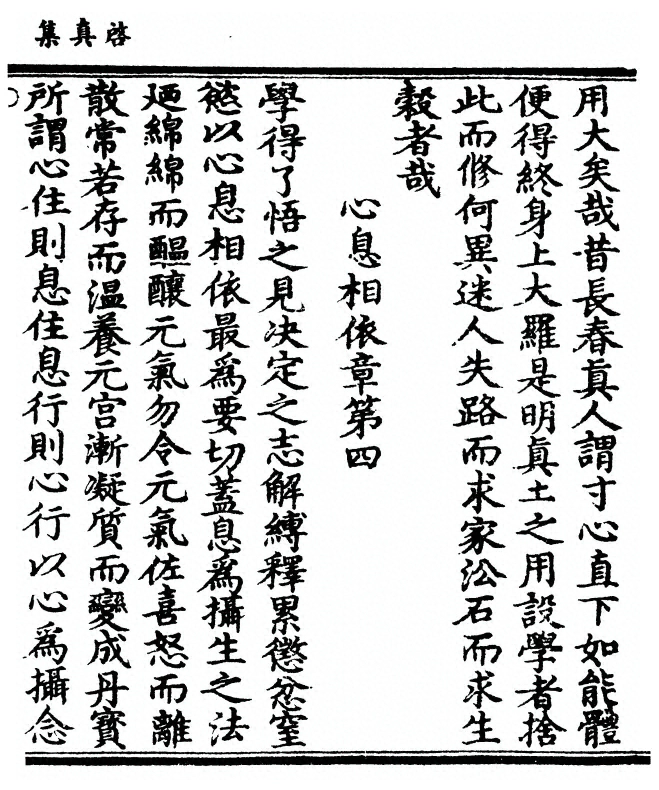 啓真集
用大矣哉昔長春真人謂寸心直下如能體
便得終身上大羅是明真土之用設學者捨
此而修何異迷人失路而求家沿石而求生
穀者哉
心息相依章第四
學得了悟之見決定之志解縛釋累懲忿窒
慾以心息相依最為要切蓋息為攝生之法
廼綿綿而醞釀元氣勿令元氣佐喜怒而離
散常若存而溫養元宮漸凝質而變成丹寶
所謂心住則息住息行則心行以心為攝念